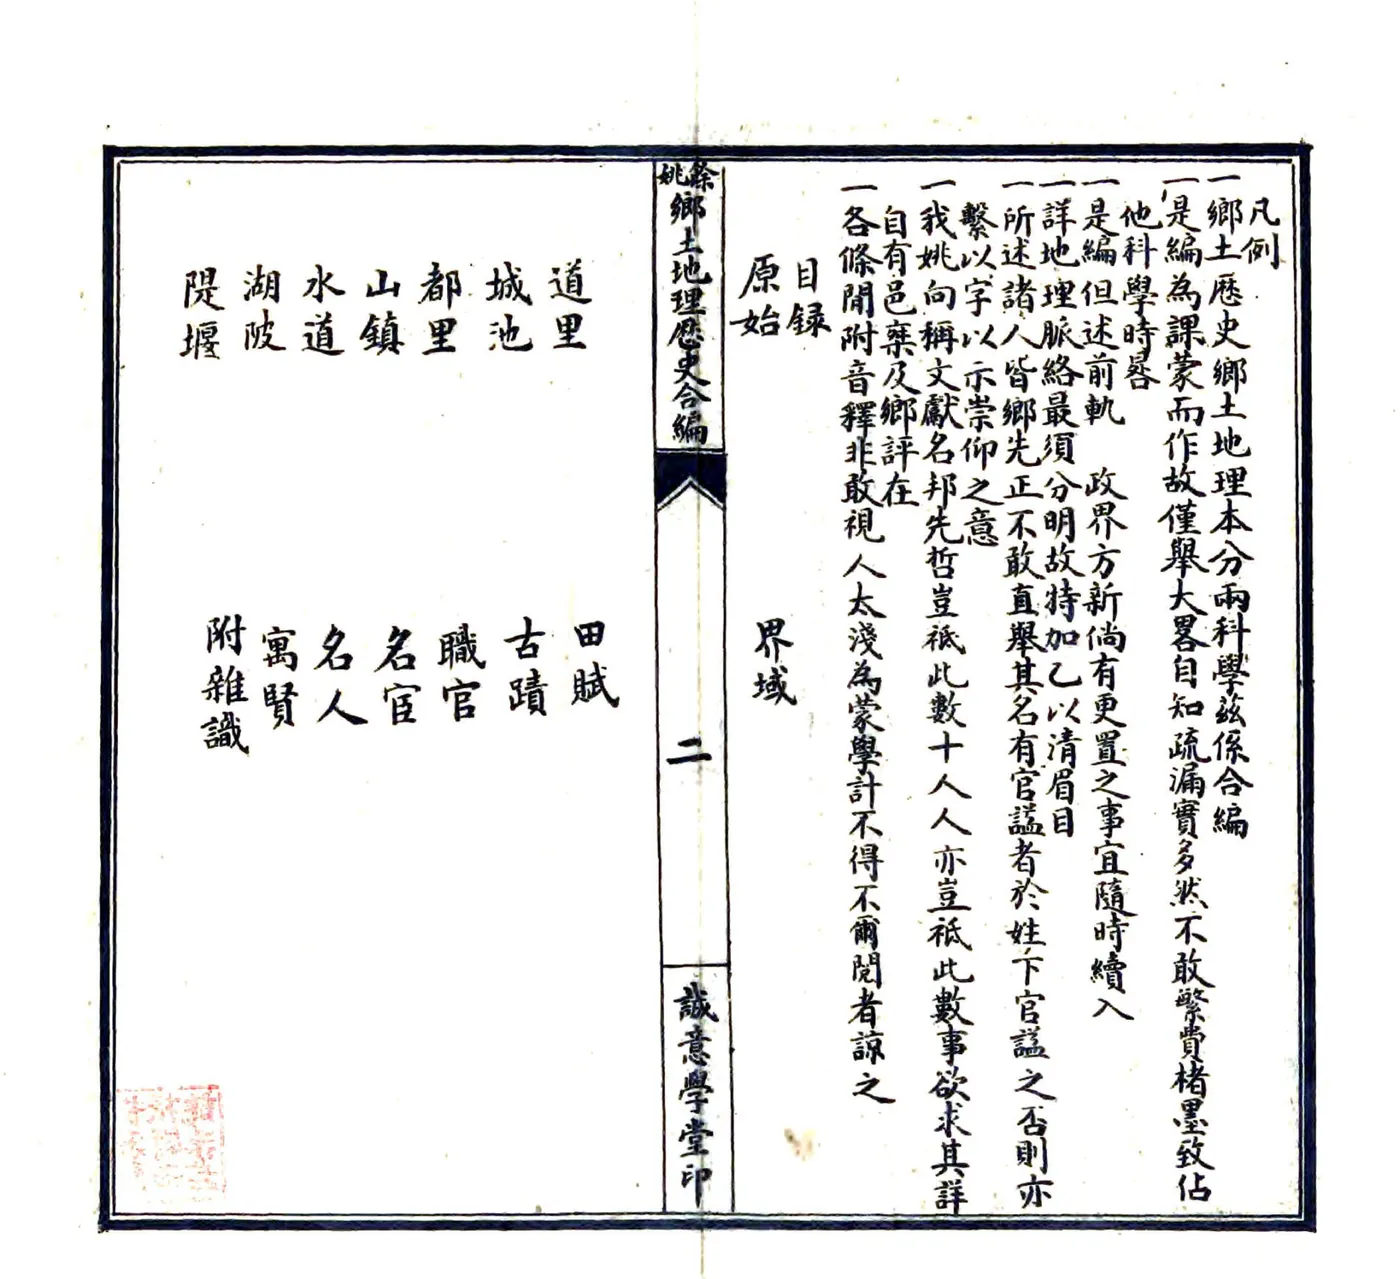 凡例
一鄉土歷史鄉土地理本分兩科學茲係合編
一是編為課蒙而作故僅舉大畧自知疏漏實多然不敢繁費楮墨致佔
他科學時晷
一是編但述前軌 政界方新倘有更置之事宜隨時續入
一詳地理脈絡最須分明故特加乙以清眉目
一所述諸人皆鄉先正不敢直舉其名有官謚者於姓下官謚之否則亦
繫以字以示崇仰之意
一我姚向稱文獻名邦先哲豈祗此數十人人亦豈祗此數事欲求其詳
自有邑乘及鄉評在
一各條閒附音釋非敢視人太淺為蒙學計不得不爾閱者諒之
目錄
原始 界域
餘姚鄉土地理歷史合編
二
誠意學堂印
道里 田賦
城池 古蹟
都里 職官
山鎮 名宦
水道 名人
湖陂 寓賢
隄堰 附雜識